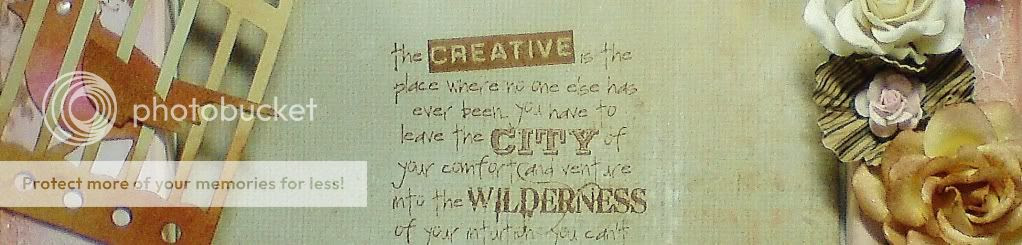 the CREATIVE is the
place where no one else has
ever been. you have to
leave the CITY of
your comfort and venture
into the WILDERNESS
of your intuition. you can't
photobucket
Protect more of your memories for less!